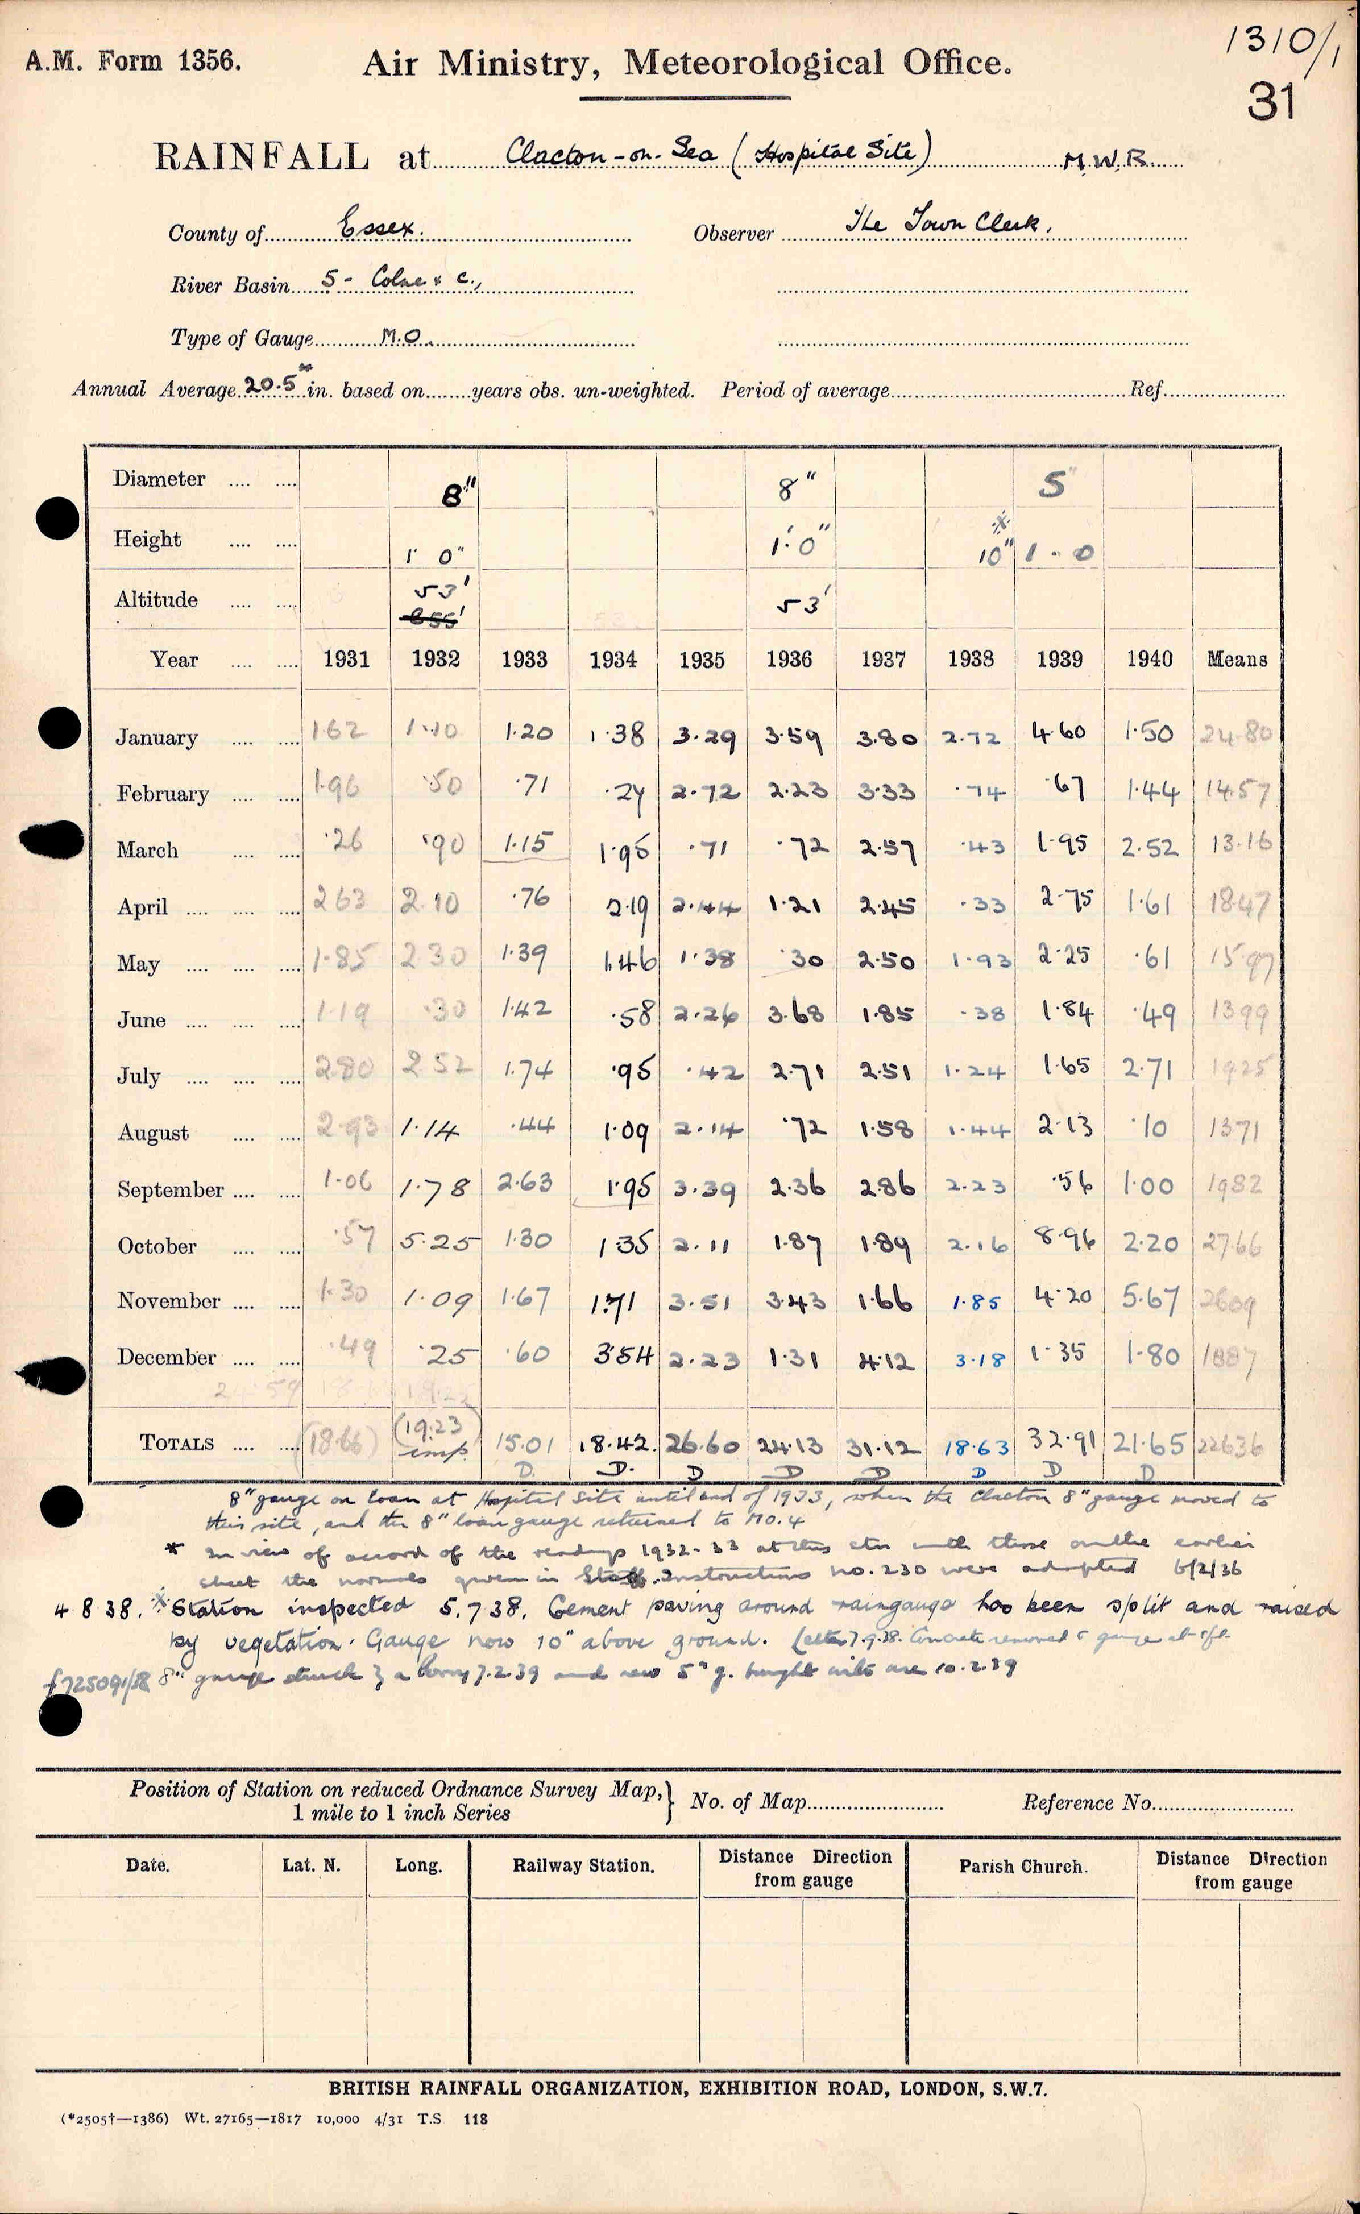 1310/1
A.M. Form 1356. Air Ministry, Meteorological Office.
31
RAINFALL at Clacton-on-Sea (Hospital Site) M.W.R.
County of Essex. Observer The Town Clerk.
River Basin 5 - Colne & c.,
Type of Gauge M.O.
Annual Average 20.5* in. based on years obs. un-weighted. Period of average Ref.
Diameter 8" 8" 5"
Height 1' 0" 1' 0" * 10" 1 - 0
Altitude 53' 53'
Year 1931 1932 1933 1934 1935 1936 1937 1938 1939 1940 Means
January 1.62 1.10 1.20 1.38 3.29 3.59 3.80 2.72 4.60 1.50 24.80
February 1.96 .50 .71 .24 2.72 2.23 3.33 .74 .67 1.44 14.57
March .26 .90 1.15 1.95 .71 .72 2.57 .43 1.95 2.52 13.16
April 2.63 2.10 .76 2.19 2.44 1.21 2.45 .33 2.75 1.61 18.47
May 1.85 2.30 1.39 1.46 1.38 .30 2.50 1.93 2.25 .61 15.97
June 1.19 .30 1.42 .58 2.26 3.68 1.85 .38 1.84 .49 13.99
July 2.80 2.52 1.74 .95 .42 2.71 2.51 1.24 1.65 2.71 19.25
August 2.93 1.14 .44 1.09 2.14 .72 1.58 1.44 2.13 .10 13.71
September 1.06 1.78 2.63 1.95 3.39 2.36 2.86 2.23 .56 1.00 19.82
October .57 5.25 1.30 1.35 2.11 1.87 1.89 2.16 8.96 2.20 27.66
November 1.30 1.09 1.67 1.71 3.51 3.43 1.66 1.85 4.20 5.67 26.09
December .49 .25 .60 3.54 2.23 1.31 4.12 3.18 1.35 1.80 18.87
TOTALS (18.66) (19.23) imp. 15.01 18.42 26.60 24.13 31.12 18.63 32.91 21.65 226.36
D. D. D D D D D D
8" gauge on loan at Hospital Site until end of 1933, when the Clacton 8" gauge moved to
this site, and the 8" loan gauge returned to M.O.4
* In view of accord of the readings 1932-33 at this stn with those on the earlier
sheet the normals given in Staff Instructions no. 230 were adopted 6/2/36
4 8 38. * Station inspected 5.7.38. Cement paving around raingauge has been split and raised
by vegetation. Gauge now 10" above ground. (letter 7.9.38. Concrete removed & gauge at 1ft.
8" gauge struck by a lorry 7.2.39 and new 5" g. brought into use 10.2.39
Position of Station on reduced Ordnance Survey Map, } No. of Map Reference No.
1 mile to 1 inch Series
Date. Lat. N. Long. Railway Station. Distance Direction from gauge Parish Church. Distance Direction from gauge
BRITISH RAINFALL ORGANIZATION, EXHIBITION ROAD, LONDON, S.W.7.
(*2505†—1386) Wt. 27165—1817 10,000 4/31 T.S. 118